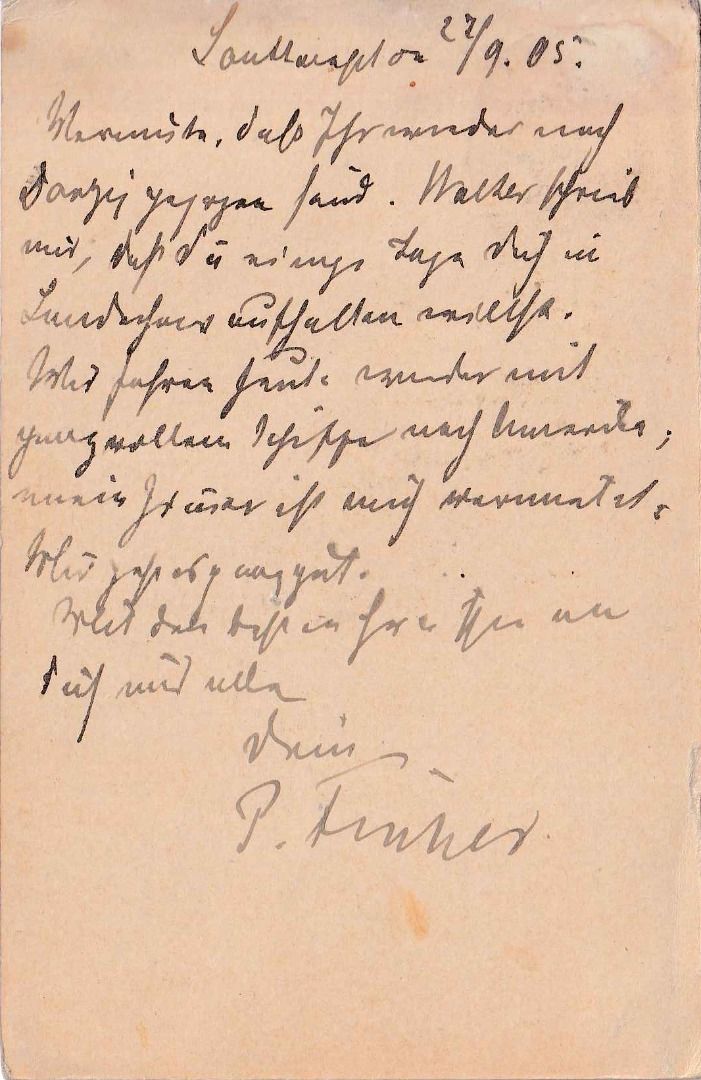 Southampton 27/9. 05.
Vermute, daß Ihr wieder nach
Danzig gezogen seid. Walter schrieb
mir, daß Du einige Tage Dich in
aufhalten willst.
Wir fahren heute wieder mit
ganz vollem Schiffe nach Amerika;
mein ist auch vermietet.
Mir geht es ganz gut.
Mit den besten Grüßen an
Dich und alle
Dein
P.